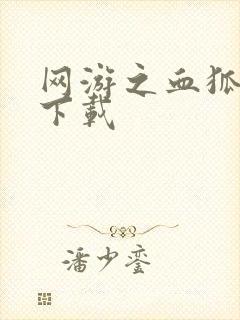 网游之血狐
下载
潘少銮